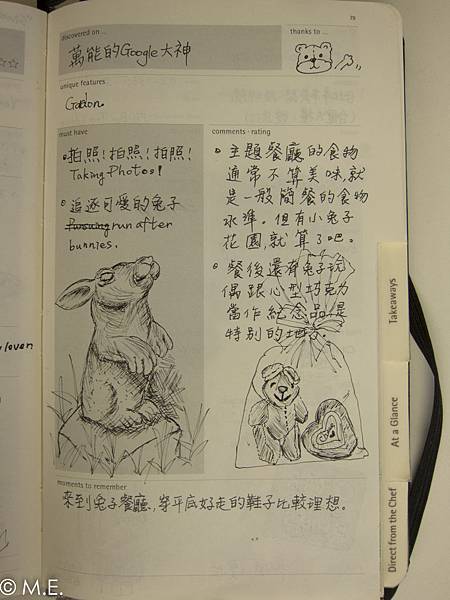 79
discovered on ...
萬能的Google大神
thanks to ...
unique features
Garden.
must have
拍照!拍照!拍照!
Taking Photos!
追逐可愛的兔子
Pursuing run after
bunnies.
comments · rating
主題餐廳的食物
通常不算美味,就
是一般簡餐的食物
水準。但有小兔子
花園,就算了吧。
餐後還有兔子玩
偶跟心型巧克力
當作紀念品,是
特別的地方。
moments to remember
來到兔子餐廳,穿平底好走的鞋子比較理想。
Takeaways
At a Glance
Direct from the Chef
© M.E.